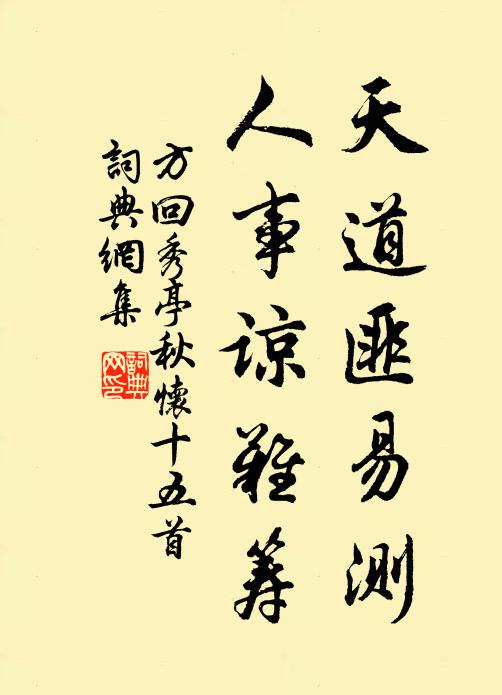 天道匪易測
人事谅難筹
方回秀亭秋懷十五首
詞典網集
詞典網印